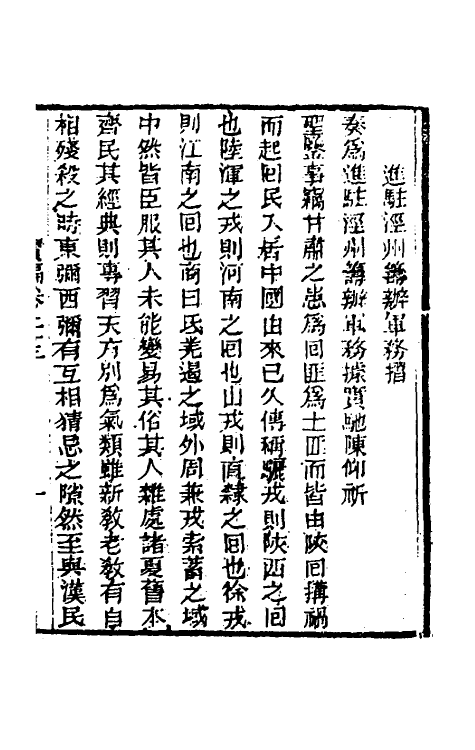 進駐涇州籌辦軍務摺
奏爲進駐涇州籌辦軍務據實馳陳仰祈
聖鑒事竊甘肅之患爲回匪爲土匪而皆由陝回搆禍
而起回民入居中國由來已久傳稱驪戎則陝西之回
也陸渾之戎則河南之回也山戎則直隸之回也徐戎
則江南之回也商曰氐羌遏之域外周兼戎索蓄之域
中然皆臣服其人未能變易其俗其人雜處諸夏舊本
齊民其經典則專習天方別爲氣類雖新敎老敎有自
相殘殺之時東彌西彌有互相猜忌之隙然至與漢民
卷二十三
一